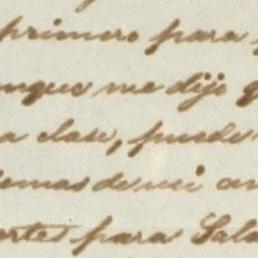 primero para
unque me dijo q
a clase, puede
emas de mi am
artes para Sala